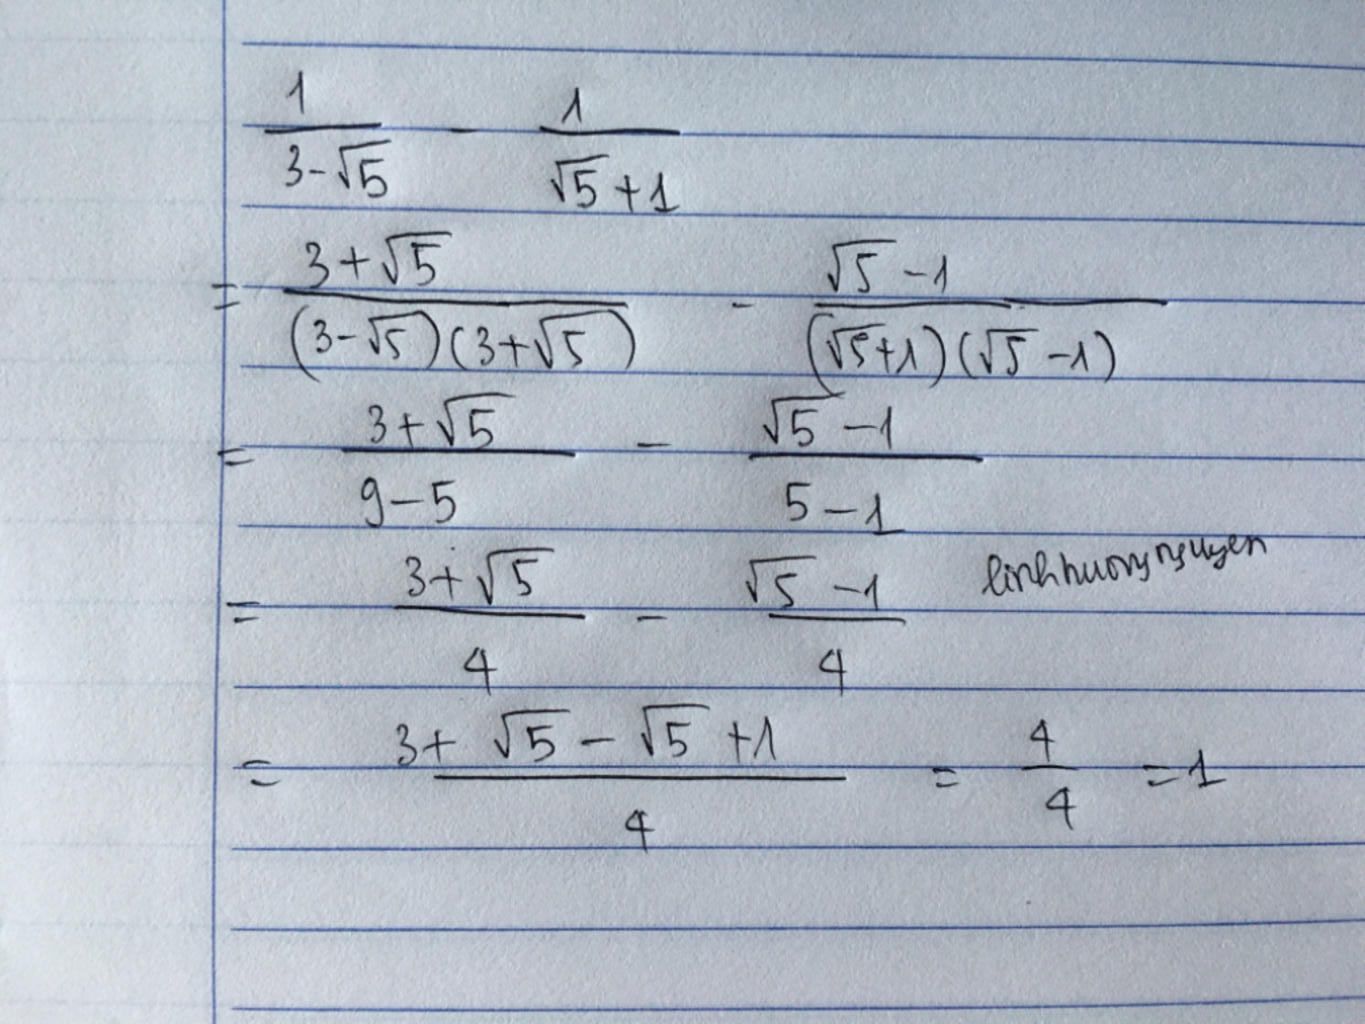 1/(3-√5) - 1/(√5+1)
= (3+√5)/((3-√5)(3+√5)) - (√5-1)/((√5+1)(√5-1))
= (3+√5)/(9-5) - (√5-1)/(5-1)
= (3+√5)/4 - (√5-1)/4
linhhuongnguyen
= (3+√5-√5+1)/4 = 4/4 = 1